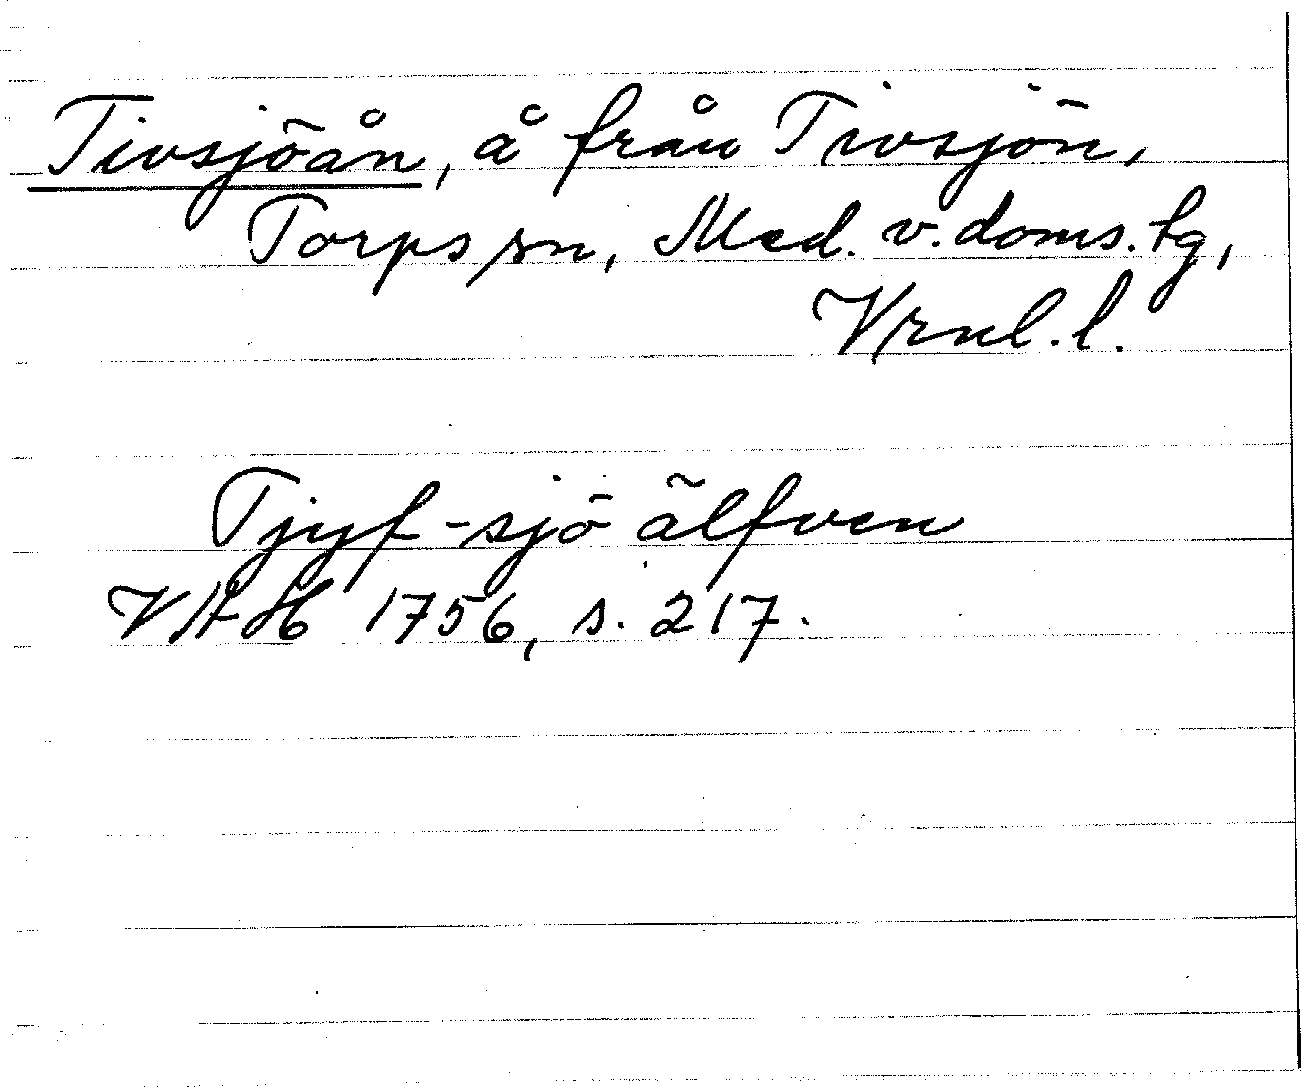 Tivsjöån, å från Tivsjön,
Torps sn, Med. v. doms. tg,
Vrnl. l.
Tjyf-sjö älfven
VAH 1756, s. 217.